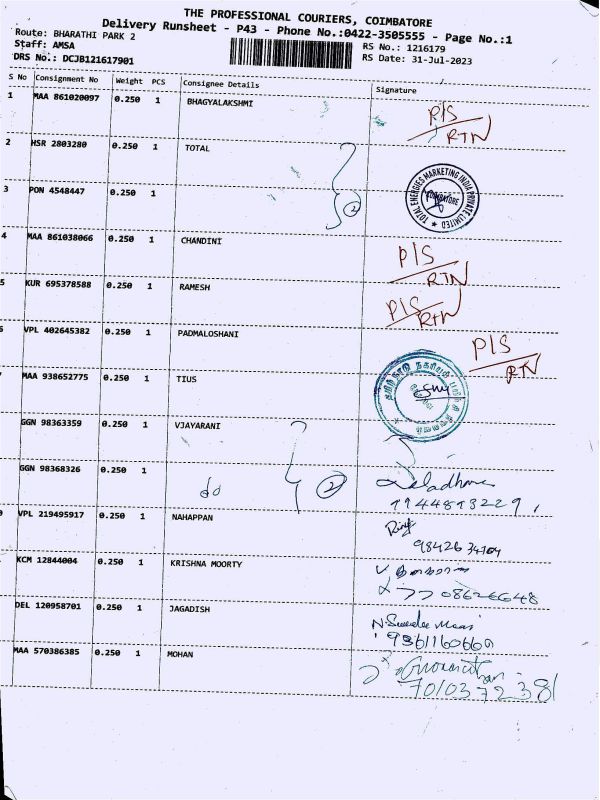 THE PROFESSIONAL COURIERS, COIMBATORE
Delivery Runsheet - P43 - Phone No.:0422-3505555 - Page No.:1
Route: BHARATHI PARK 2
RS No.: 1216179
Staff: AMSA
RS Date: 31-Jul-2023
DRS No.: DCJB121617901
S No Consignment No Weight PCS Consignee Details Signature
1 MAA 861020097 0.250 1 BHAGYALAKSHMI P/S
RTN
2 HSR 2803280 0.250 1 TOTAL
TOTAL ENERGIES MARKETING INDIA PRIVATE LIMITED
COIMBATORE
3 PON 4548447 0.250 1 2
4 MAA 861038066 0.250 1 CHANDINI P/S
RTN
5 KUR 695378588 0.250 1 RAMESH P/S
RTN
VPL 402645382 0.250 1 PADMALOSHANI P/S
RTN
MAA 938652775 0.250 1 TIUS
GGN 98363359 0.250 1 VJAYARANI
GGN 98368326 0.250 1 do 2
VPL 219495917 0.250 1 NAHAPPAN
KCM 12844004 0.250 1 KRISHNA MOORTY
DEL 120958701 0.250 1 JAGADISH
9361160660
MAA 570386385 0.250 1 MOHAN